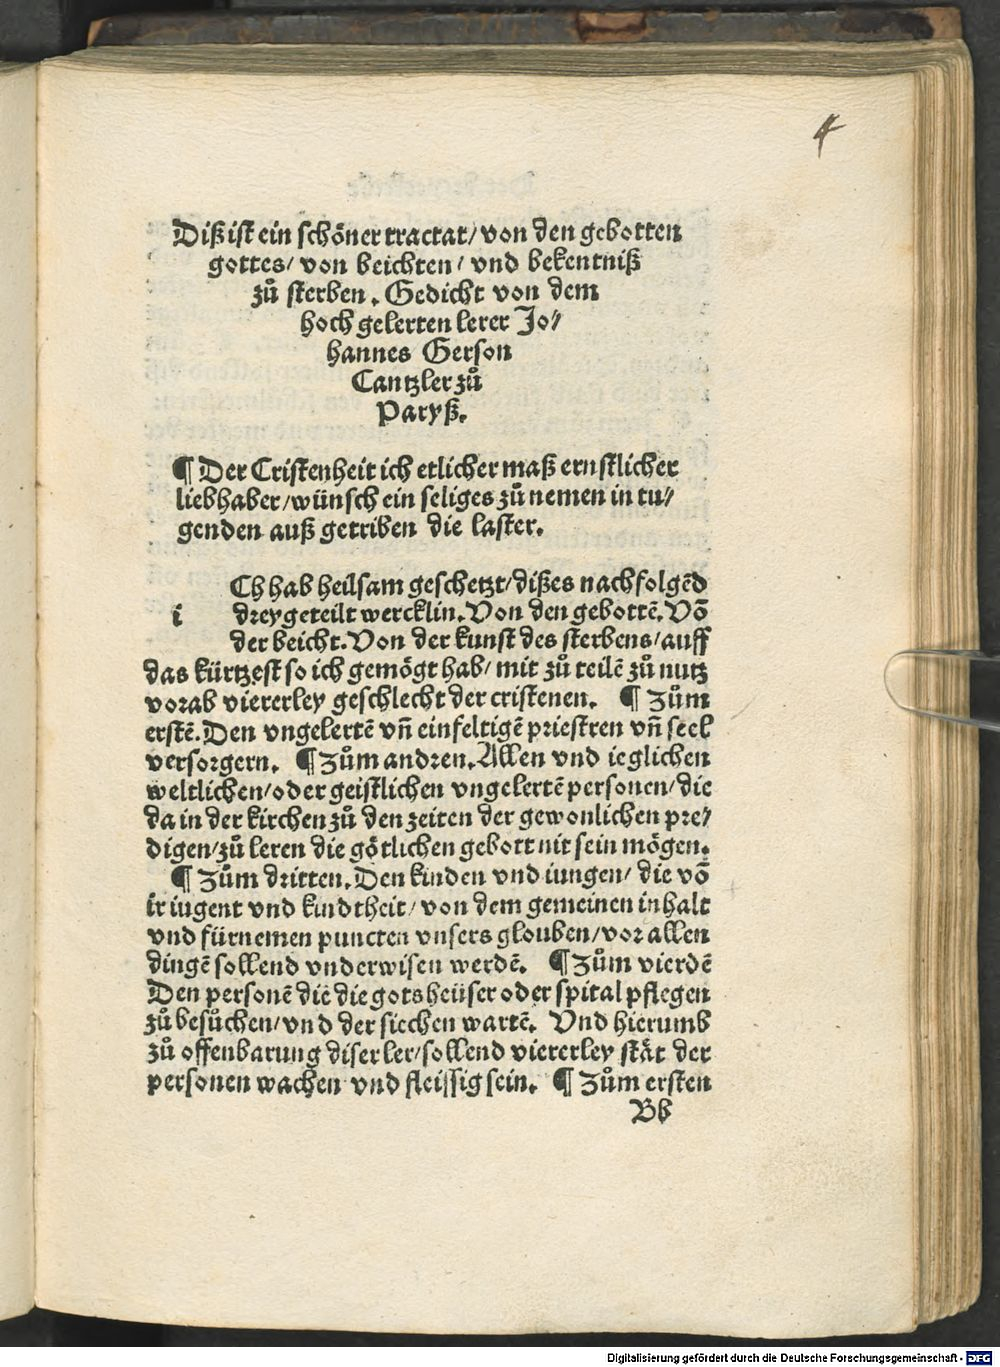 4
Diß ist ein schöner tractat/ von den gebotten
gottes/ von beichten/ vnd bekentniß
zů sterben. Gedicht von dem
hoch gelerten lerer Jo/
hannes Gerson
Cantzler zů
Paryß.
¶ Der Cristenheit ich etlicher maß ernstlicher
liebhaber/ wünsch ein seliges zů nemen in tu/
genden auß getriben die laster.
Ch hab heilsam geschetzt/ dißes nachfolgẽd
i dreygeteilt wercklin. Von den gebottẽ. Võ
der beicht. Von der kunst des sterbens/ auff
das kürtzest so ich gemögt hab/ mit zů teilẽ zů nutz
vorab viererley geschlecht der cristenen. ¶ Zům
erstẽ. Den vngelertẽ vñ einfeltigẽ priestren vñ seel
versorgern. ¶ Zům andren. Allen vnd ieglichen
weltlichen/ oder geistlichen vngelertẽ personen/ die
da in der kirchen zů den zeiten der gewonlichen pre/
digen/ zů leren die götlichen gebott nit sein mögen.
¶ Zům dritten. Den kinden vnd iungen/ die võ
ir iugent vnd kindtheit/ von dem gemeinen inhalt
vnd fürnemen puncten vnsers glouben/ vor allen
dingẽ sollend vnderwisen werdẽ. ¶ Zům vierdẽ
Den personẽ die die gotsheüser oder spital pflegen
zů besůchen/ vnd der siechen wartẽ. Vnd hierumb
zů offenbarung diser ler/ sollend viererley stät der
personen wachen vnd fleissig sein. ¶ Zům ersten
Bb
Digitalisierung gefördert durch die Deutsche Forschungsgemeinschaft - DFG